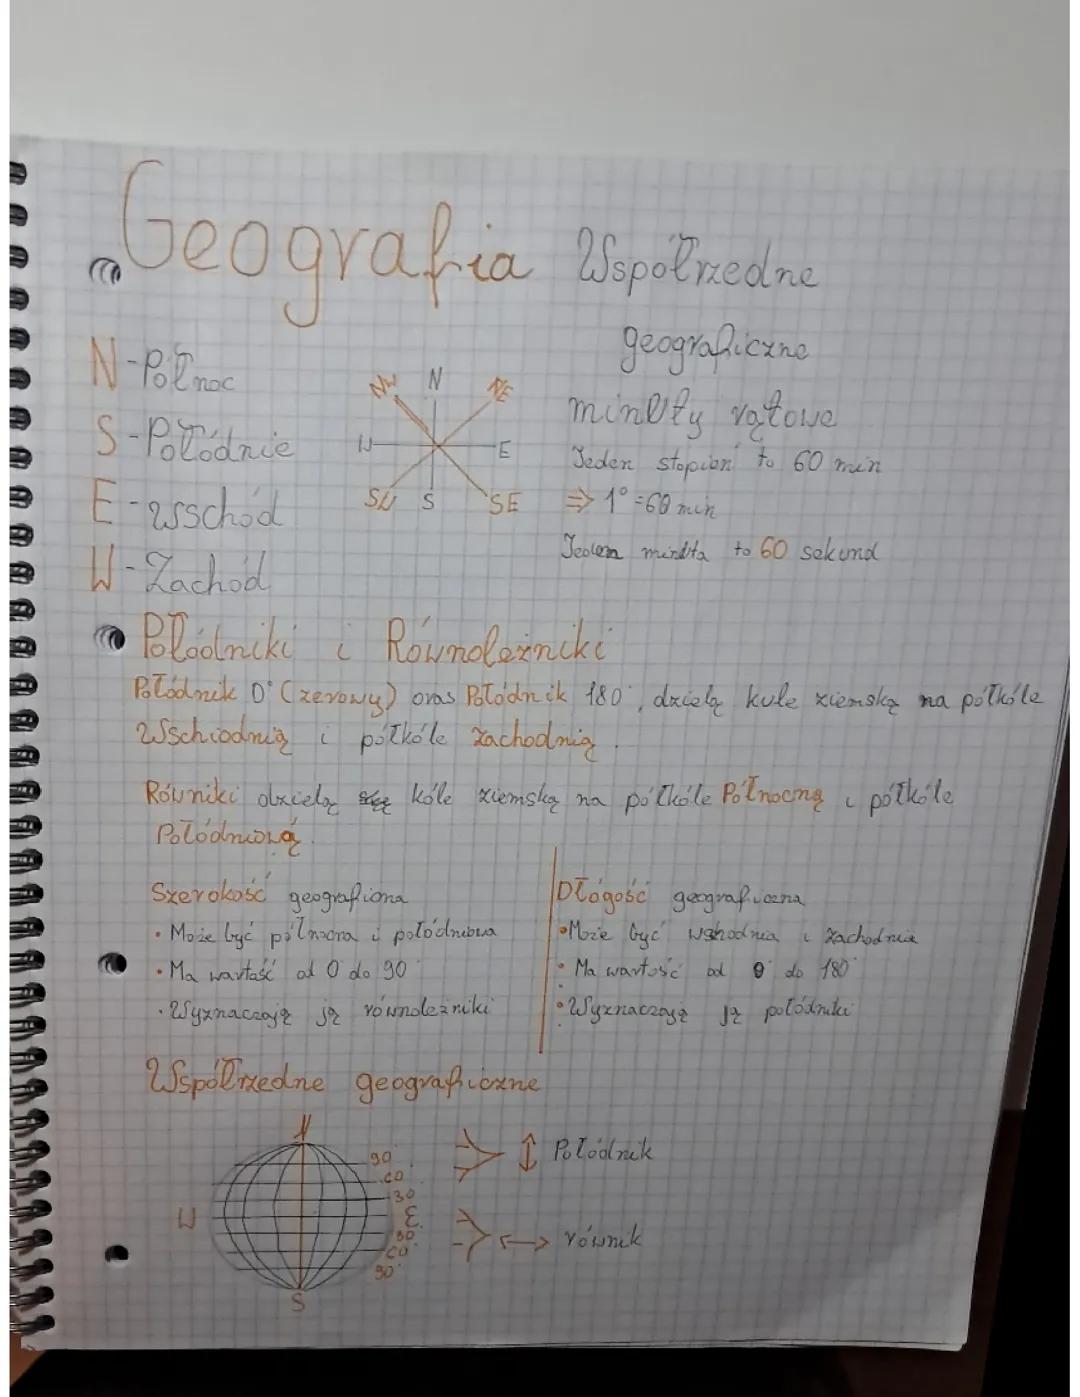 Geografia
Współrzedne
geograficzne
N-Północ
S-Połódnie
E-wschód
W-Zachód
NW N NE
W E
SW S SE
minuty kątowe
Jeden stopień to 60 min
⇒ 1°=60 min
Jeden minuta to 60 sekund
Połódniki i Równoleżniki
Połódnik 0° (zerowy) oras Połódnik 180°, dzielą kule ziemską na półkóle
Wschiodnią i półkóle zachodnią.
Równiki dzielą kóle ziemską na półkóle Północną i półkóle
Połódniową.
Szerokość geograficzna
• Może być północna i połódniowa
• Ma wartość od 0° do 90°
• Wyznaczają ją równoleżniki
Dłógość geograficzna
• Może być wshodnia i zachodnia
• Ma wartość od 0° do 180°
• Wyznaczają ją połódniki
Współrzedne geograficzne
N
90°
60
30
W
E
30
60
90°
S
Połódnik
równik